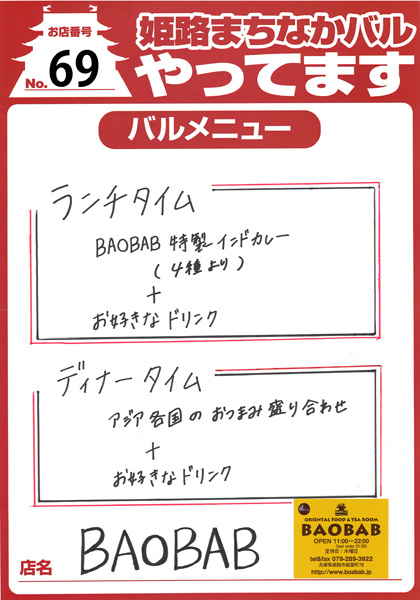 お店番号
No.69
姫路まちなかバル
やってます
バルメニュー
ランチタイム
BAOBAB 特製 インドカレー
(4種より)
+
お好きなドリンク
ディナータイム
アジア各国のおつまみ盛り合わせ
+
お好きなドリンク
店名 BAOBAB
ORIENTAL FOOD & TEA ROOM
BAOBAB
OPEN 11:00〜22:00
定休日:木曜日
tel&fax 079-289-3922
http://www.boabab.jp